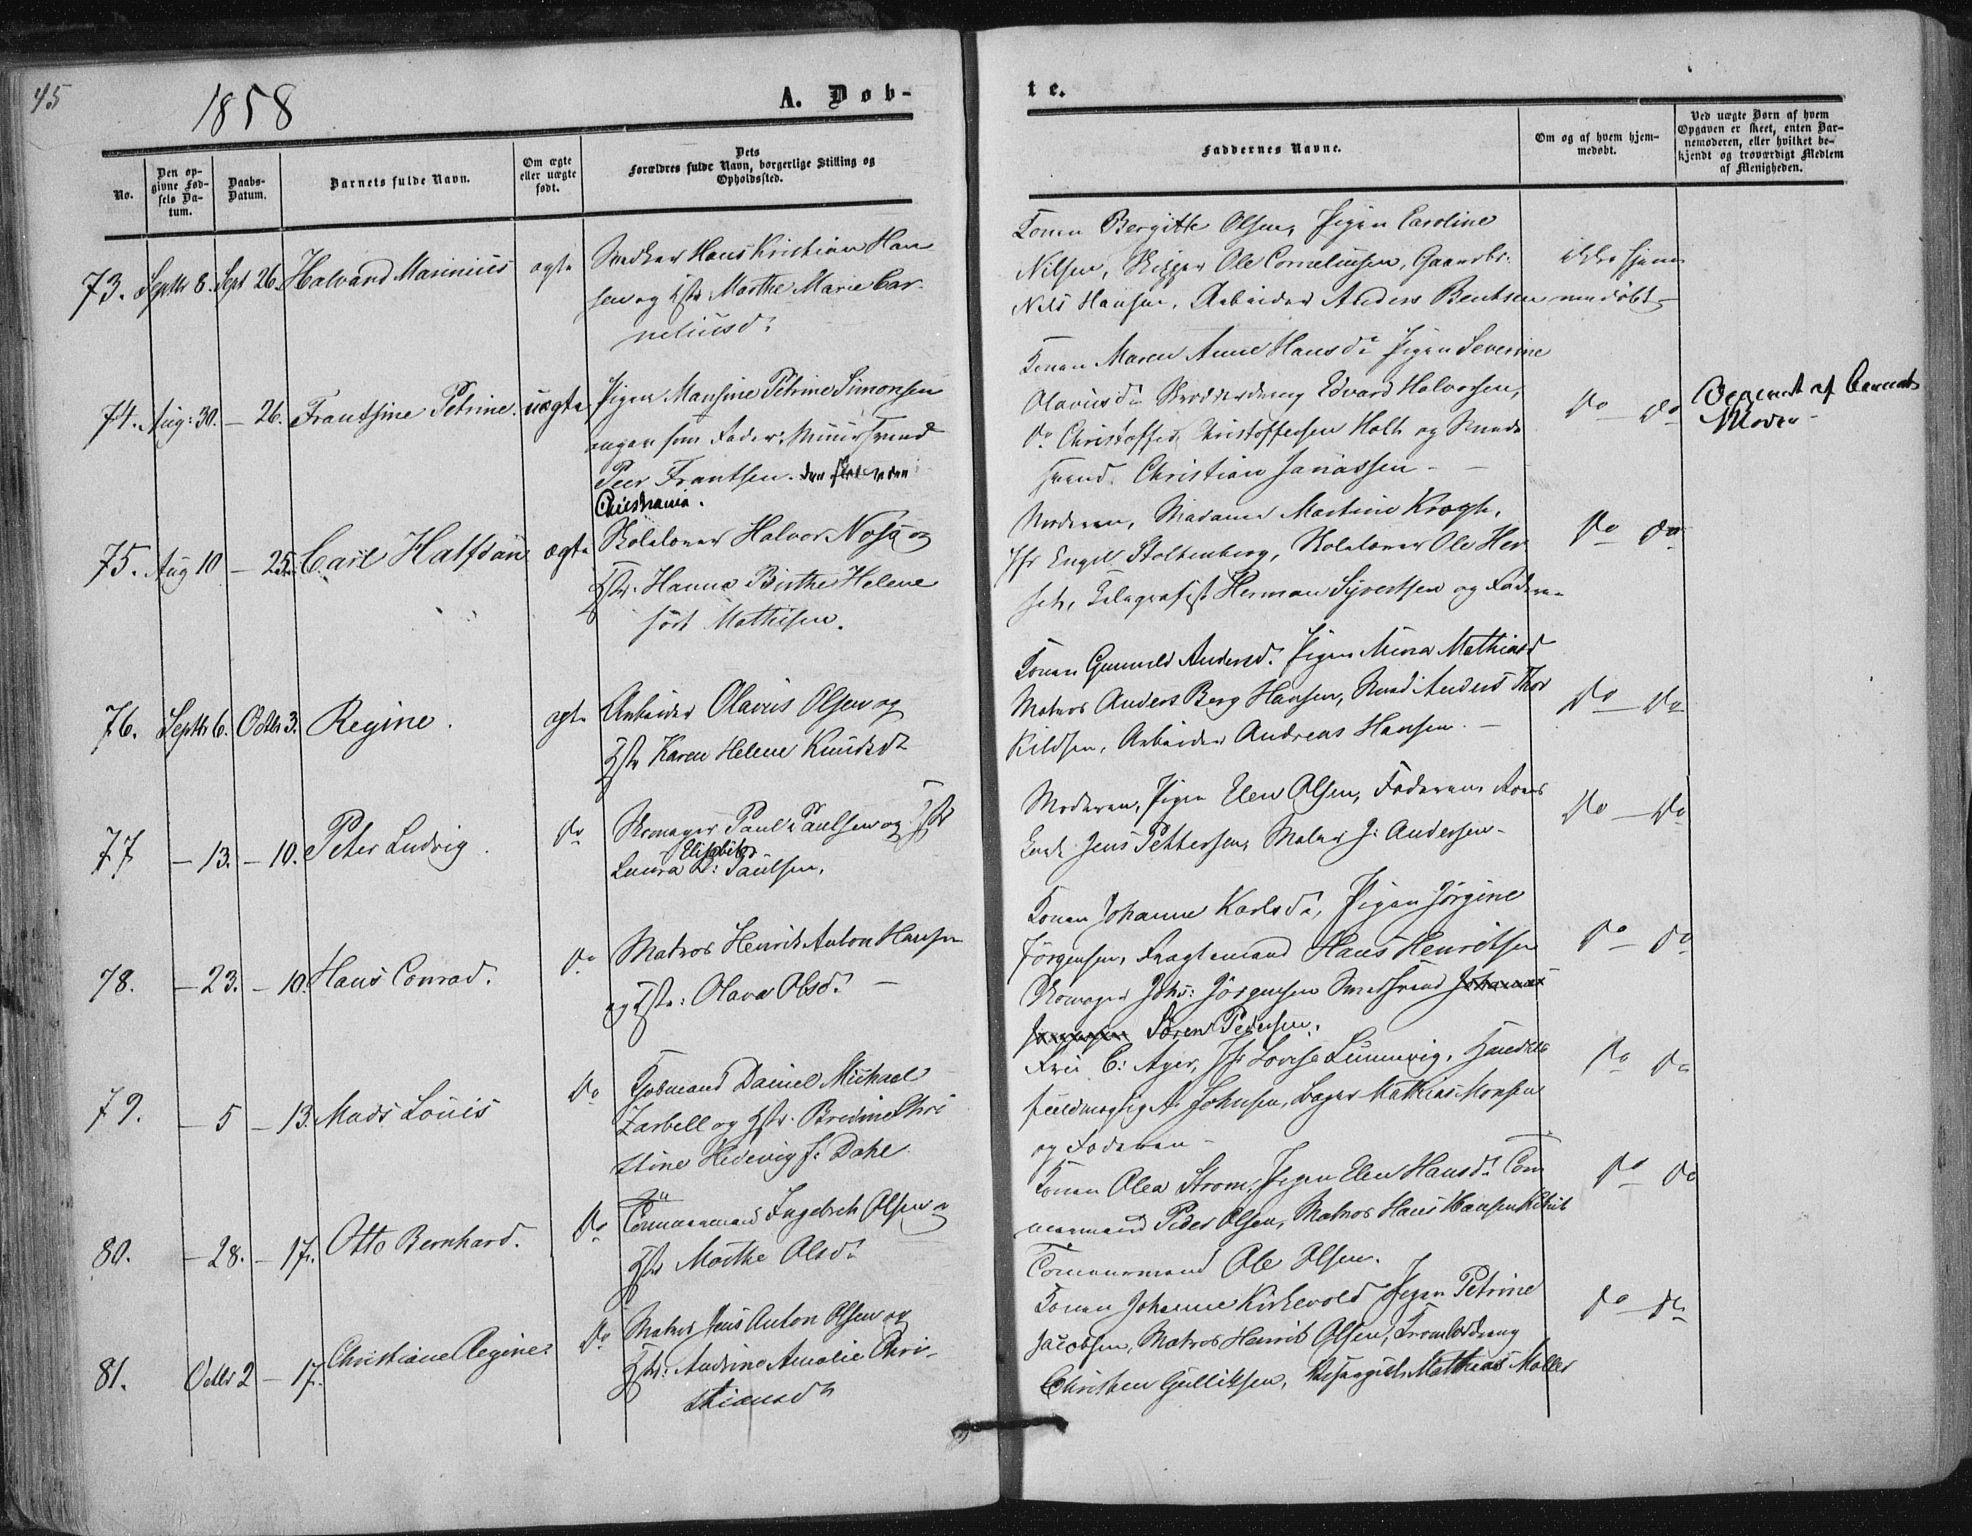 45
1858
A. Døb-
te.
No.
Den op-
givne Fød-
sels Da-
tum.
Daabs-
Datum.
Barnets fulde Navn.
Om ægte
eller uægte
født.
Dets
Forældres fulde Navn, borgerlige Stilling og
Opholdssted.
Faddernes Navne.
Om og af hvem hjem-
medøbt.
Ved uægte Børn af hvem
Opgaven er skeet, enten Bar-
nemoderen, eller hvilket be-
kjendt og troværdigt Medlem
af Menigheden.
73. Septbr 8. Sept 26. Halvard Marinius ægte
Hans Kristian Han
sen og Hstr. Marthe Marie Cor-
neliusd:
Konen Bergitte Olsen, Pigen Caroline
Nilsen, Skipper Ole Corneliusen, Gaardbr:
Nils Hansen, Arbeider Anders Bentsen
ikke hjem
medøbt
74. Aug: 30. — 26. Frantsine Petrine. uægte
Pigen Mansine Petrine Simonsen
angav som Fader, Muursvend
Peer Frantsen.
Christiania.
Konen Maren Anne Hansd: Pigen Severine
Olavusd: Skrædderdreng Edvard Halvorsen,
Do Christoffer Christoffersen Holt og
svend Christian Janassen —
Do — Do
Opgivet af Barnets
Moder
75. Aug 10 — 25. Carl Halfdan ægte
Skolelærer Halvor Nosa og
Hstr. Hanna Birthe Helene
født Mathisen.
Moderen, Madame Martine Krogh,
Jfr Engel Stoltenberg, Skolelærer Ole Her
set, Telegrafist Herman Syvertsen og Faderen
Do Do
76. Septbr 6. Octbr 3. Regine. ægte
Arbeider Olavus Olsen og
Hstr Karen Helene Knudsd:
Konen Gunnild Andersd: Pigen Anna Mathiasd
Matros Anders Berg Hansen, Anders Thor
kildsen, Arbeider Andreas Hansen. —
Do — Do
77 — 13. — 10. Peter Ludvig. Do
Skomager Paul Paulsen og Hstr
Elisabeth
Laura Paulsen.
Moderen, Pigen Elen Olsen, Faderen,
Jens Pettersen, Maler J: Andersen —
Do — Do
78. — 23. — 10. Hans Conrad. Do
Matros Henrik Anton Hansen
og Hstr: Olava Olsd: —
Konen Johanne Karlsd:, Pigen Jørgine
Jørgensen, Fragtemand Hans Henriksen
Skomager Johs: Jørgensen Smedsvend Johannes
Jørgensen Søren Pedersen.
Do — Do
79. — 5 — 13. Mads Louis Do
Kjøbmand Daniel Michael
Zarbell og Hstr. Bredine Chri
stine Hedevig f: Dahl.
Fru C: Ager, Jfr Lovise Lunnevig, Handels
fuldmægtig A Johnsen, Bager Mathias Monsen
og Faderen —
Do Do
80. — 28. — 17. Otto Bernhard. Do
Tømmermand Ingebret Olsen og
Hstr Marthe Olsd:
Konen Olea Strøm, Pigen Elen Hansd: Tøm
mermand Peder Olsen, Matros Hans Hansen
Tømmermand Ole Olsen.
Do Do
81. Octbr 2 — 17. Christiane Regine. Do
Matros Jens Anton Olsen og
Hstr: Andrine Amalie Chri-
stiansd:
Konen Johanne Kirkevold Pigen Petrine
Jacobsen, Matros Henrik Olsen,
Christen Gulliksen, Mathias Møller
Do — Do